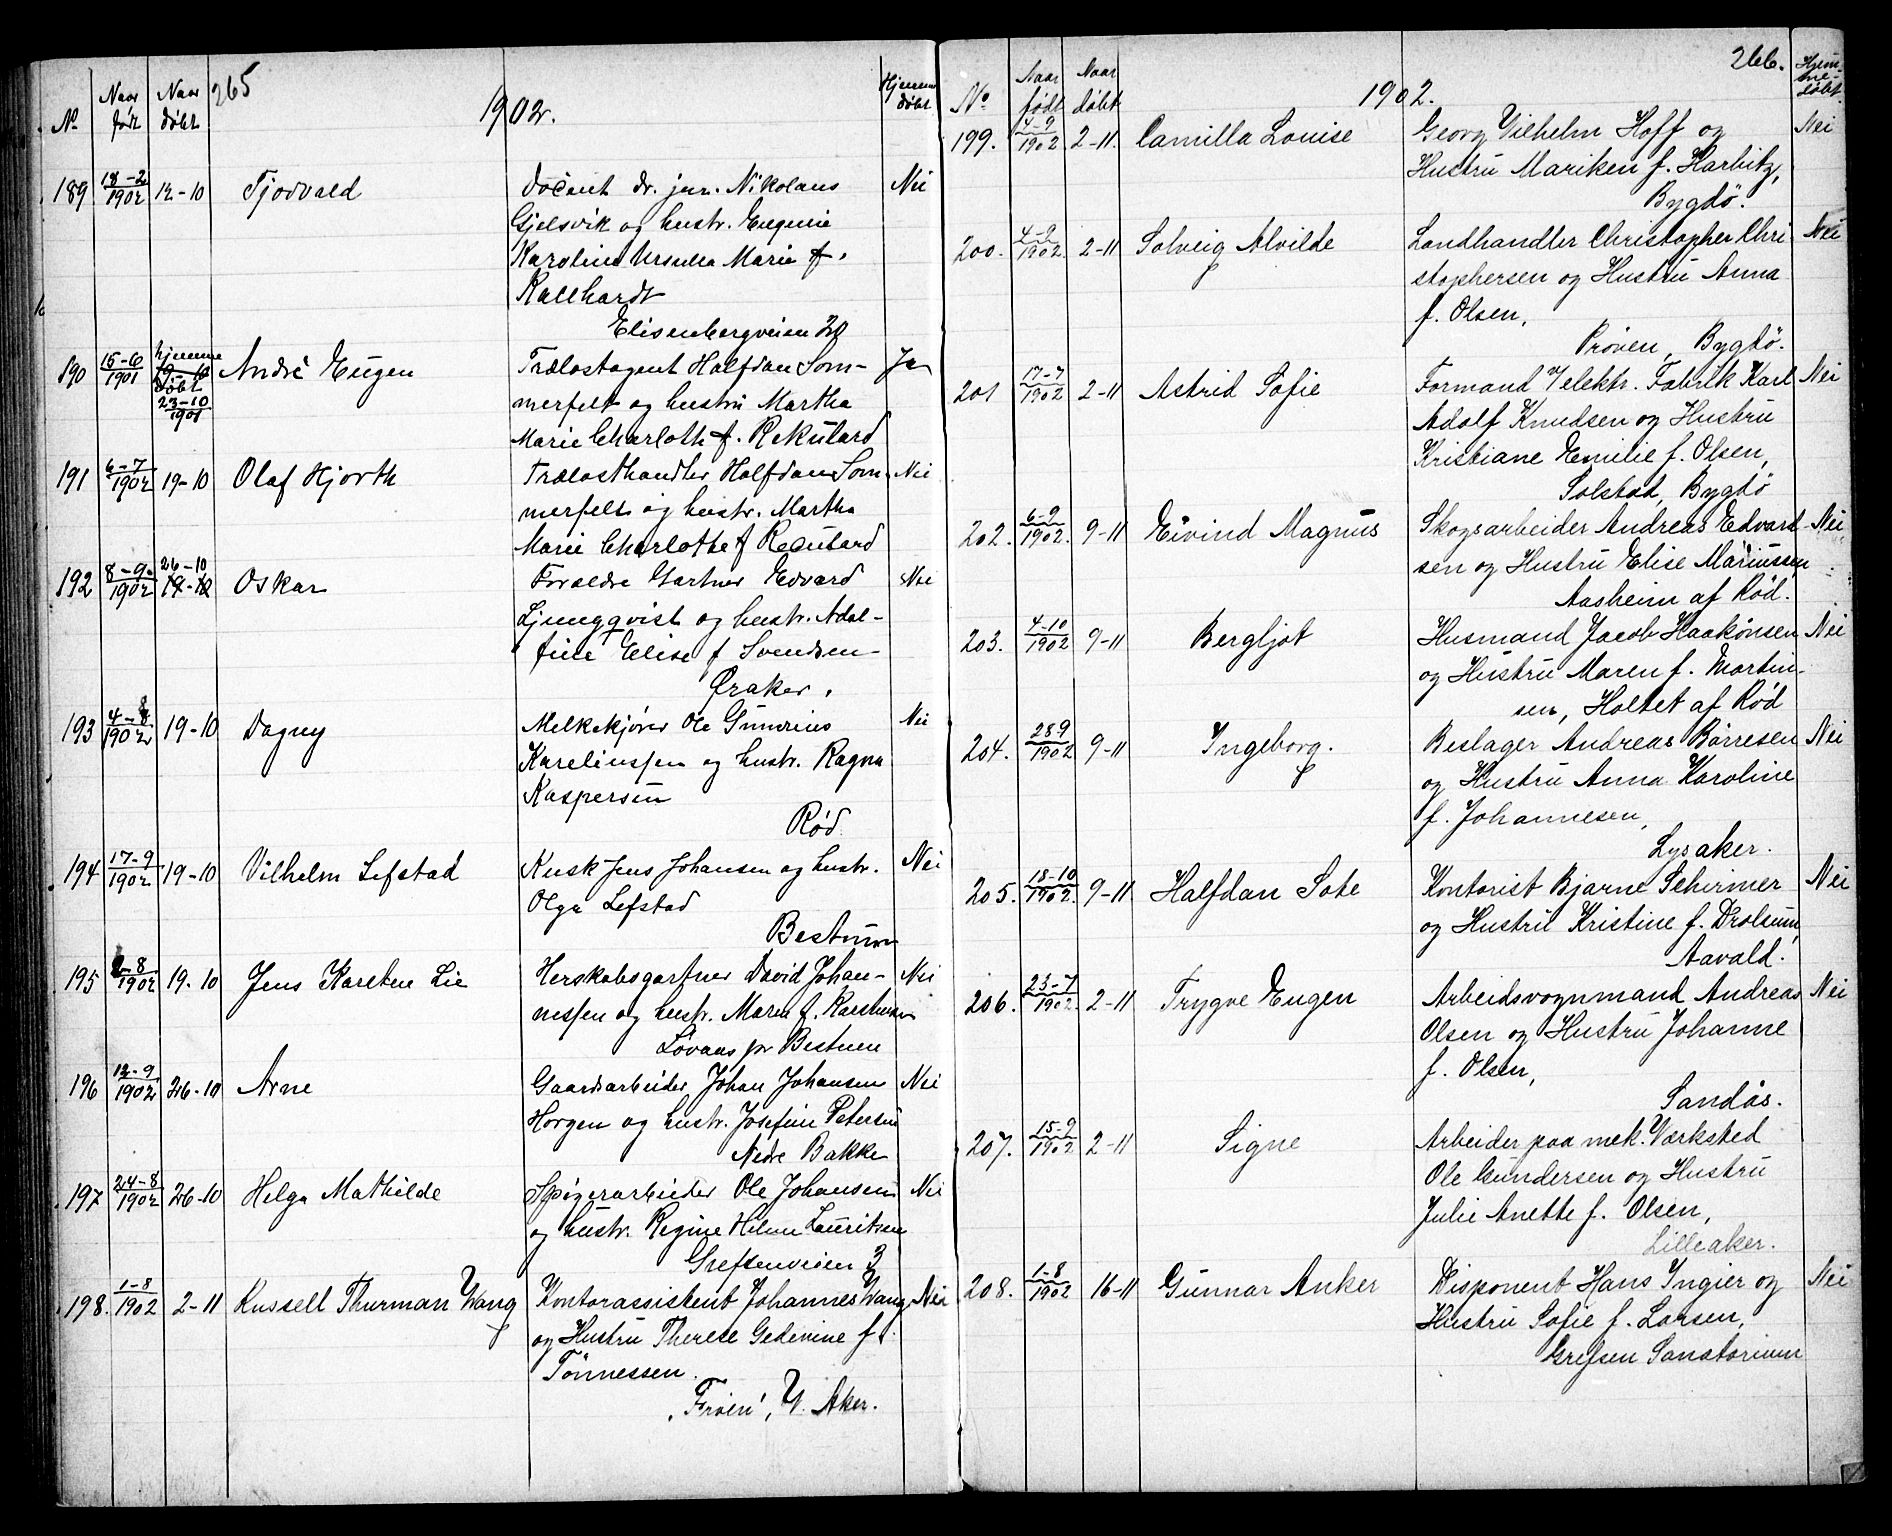 265
1902.
No. Naar født Naar døbt Hjemmedøbt
189 18-2/1902 12-10 Tjodvald Docent dr. jur. Nikolaus Nei
Gjelsvik og hustr. Eugenie
Karoline Ursula Marie f.
Kallhardt
Elisenbergveien 20
190 15-6/1901 hjemme døbt 23-10/1901 André Eugen Trælastagent Halfdan Som- Ja
merfelt og hustru Martha
Marie Charlothe f.
191 6-7/1902 19-10 Olaf Hjorth Trælasthandler Halfdan Som- Nei
merfelt og hustr. Martha
Marie Charlotte f
192 8-9/1902 26-10 19-10 Oskar Forældre Gartner Edvard Nei
Ljungqvist og hustr. Adol-
fine Elise f Svendsen
Øraker.
193 4-8/1902 19-10 Dagny Melkekjører Ole Gunerius Nei
Karelinssen og hustr. Ragna
Kaspersen
Rød
194 17-9/1902 19-10 Vilhelm Lefstad Kusk Jens Johansen og hustr. Nei
Olga Lefstad
Bestum
195 2-8/1902 19-10 Jens Karsten Lie Herskabsgartner David Johan- Nei
nessen og hustr. Maren f. Karstensen
pr Bestum
196 12-9/1902 26-10 Arne Gaardsarbeider Johan Johansen Nei
Horgen og hustr. Josefine Petersen
Nedre Bakke
197 24-8/1902 26-10 Helga Mathilde Spigerarbeider Ole Johansen Nei
og hustr. Regine Helene Lauritsen
Grefsenveien 3
198. 1-8/1902 2-11 Russell Thurman Wang Kontorassistent Johannes Wang Nei
og Hustru Therese Gedevine f.
Tönnessen.
"Fröen", V. Aker.
266.
1902.
No Naar født Naar døbt Hjemmedøbt
199. 4-9/1902 2-11. Camilla Louise Georg Vilhelm Hoff og Nei
Hustru Mariken f. Harbitz,
Bygdö.
200. 4-9/1902. 2-11 Solveig Alvilde Landhandler Christopher Chri Nei
stophersen og Hustru Anna
f. Olsen,
Pröven, Bygdö.
201 17-7/1902 2-11 Astrid Sofie Formand v/elektr. Fabrik Karl Nei
Adolf Knudsen og Hustru
Kristiane Emilie f. Olsen,
Solstad, Bygdö
202. 6-9/1902. 9-11 Eivind Magnus Skogsarbeider Andreas Edvard- Nei
sen og Hustru Elise Mariussen
Aasheim af Röd.
203. 4-10/1902 9-11 Bergljot Husmand Jacob Haakonsen Nei
og Hustru Maren f. Martin-
sen, Holtet af Röd
204. 28-9/1902 9-11 Ingeborg. Beslager Andreas Börresen Nei
og Hustru Anna Karoline
f. Johannesen,
Lysaker.
205. 18-10/1902. 9-11 Halfdan Sote Kontorist Bjarne Schirmer Nei
og Hustru Kristine f. Drolsum,
Aavald.
206. 23-7/1902. 2-11 Trygve Eugen Arbeidsvognmand Andreas Nei
Olsen og Hustru Johanne
f. Olsen,
Sandås.
207. 15-9/1902 2-11 Signe Arbeider paa mek. Værksted
Ole Gundersen og Hustru
Julie Anette f. Olsen,
Lilleaker.
208. 1-8/1902 16-11 Gunnar Anker Disponent Hans Ingier og Nei
Hustru Sofie f. Larsen,
Grefsen Sanatorium